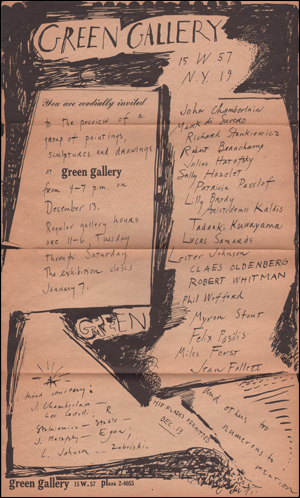 GREEN GALLERY
15 W 57
N.Y. 19
You are cordially invited
to the preview of a
group of paintings,
sculptures and drawings
at green gallery
from 4-7 p.m. on
December 13.
Regular gallery hours
are 11-6, Tuesday
through Saturday.
The exhibition closes
January 7.
John Chamberlain
Mark di Suvero
Richard Stankiewicz
Robert Beauchamp
Julius Hatofsky
Sally Hazelet
Patricia Passlof
Lilly Brody
Aristodemos Kaldis
Tadaaki Kuwayama
Lucas Samaras
Lester Johnson
CLAES OLDENBERG
ROBERT WHITMAN
Phil Wofford
Myron Stout
Felix Pasilis
Miles Forst
Jean Follett
And others too
numerous to mention
GREEN
courtesy:
J. Chamberlain –
Leo Castelli;
Stankiewicz – Stable –
J. Hatofsky – Egan;
L. Johnson – Zabriskie.
DEC 13
green gallery 15 W. 57 plaza 2-4055